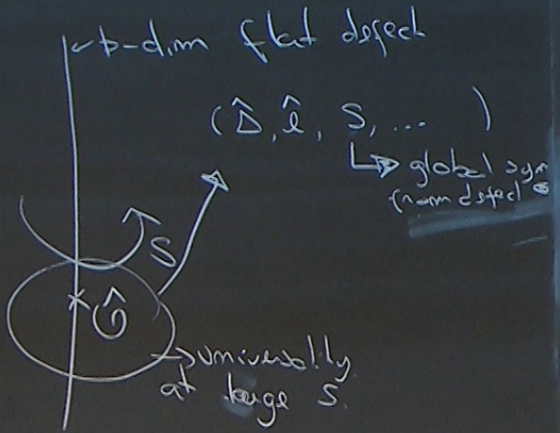 p-dim flat defect
(Δ̂, ℓ̂, S, ... )
↳ global sym
(from defect
S
Ô
→ universality
at large S.